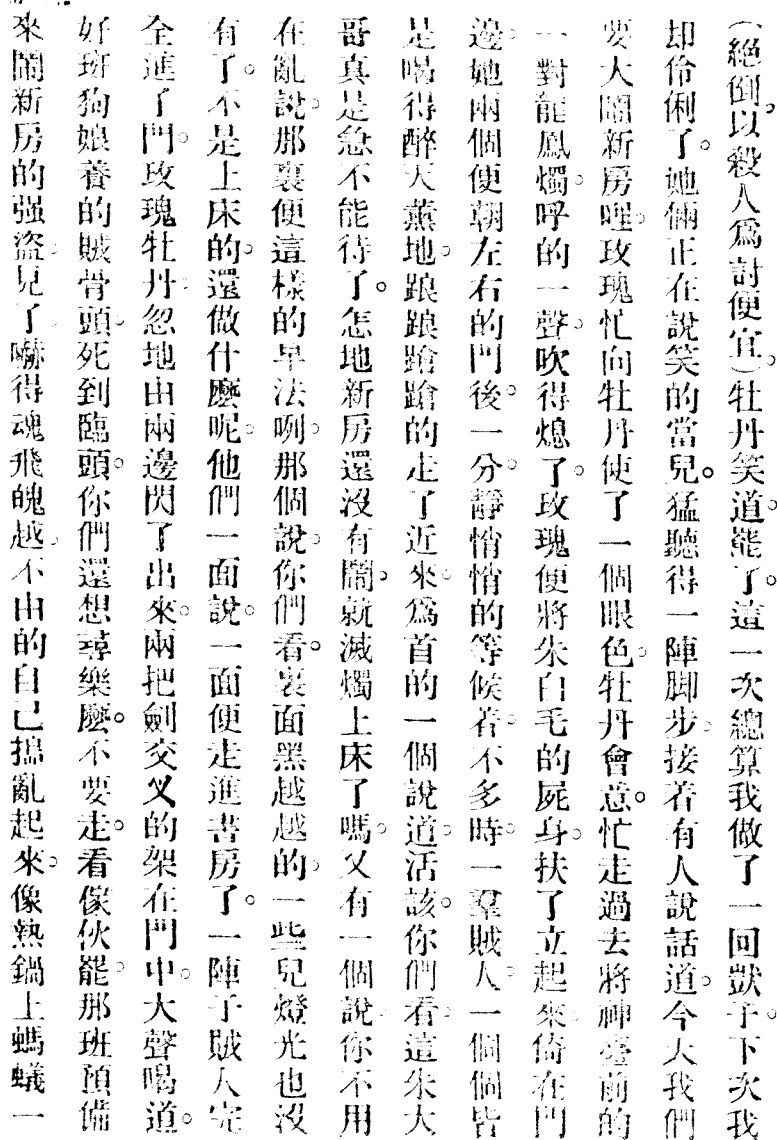 （絕倒。以殺人爲討便宜。）牡丹笑道。罷了。這一次總算我做了一回獃子。下次我
却伶俐了。她倆正在說笑的當兒。猛聽得一陣脚步。接着有人說話道。今天我們
要大鬧新房哩。玫瑰忙向牡丹使了一個眼色。牡丹會意。忙走過去將神臺前的
一對龍鳳燭。呼的一聲。吹得熄了。玫瑰便將朱白毛的屍身。扶了立起來。倚在門
邊。她兩個便朝左右的門後。一分。靜悄悄的等候着。不多時。一羣賊人。一個個皆
是喝得醉天薰地。踉踉蹌蹌的走了近來。爲首的一個說道。活該。你們看。這朱大
哥真是急不能待了。怎地新房還沒有鬧。就滅燭上床了嗎。又有一個說。你不用
在亂說。那裏便這樣的早法咧。那個說。你們看。裏面黑越越的。一些兒燈光也沒
有了。不是上床的。還做什麼呢。他們一面說。一面便走進書房了。一陣子賊人完
全進了門。玫瑰牡丹。忽地由兩邊閃了出來。兩把劍交叉的架在門中。大聲喝道。
好班狗娘養的賊骨頭。死到臨頭。你們還想尋樂麼。不要走。看傢伙罷。那班預備
來鬧新房的强盜。見了嚇得魂飛魄越。不由的自己搗亂起來。像熱鍋上螞蟻一